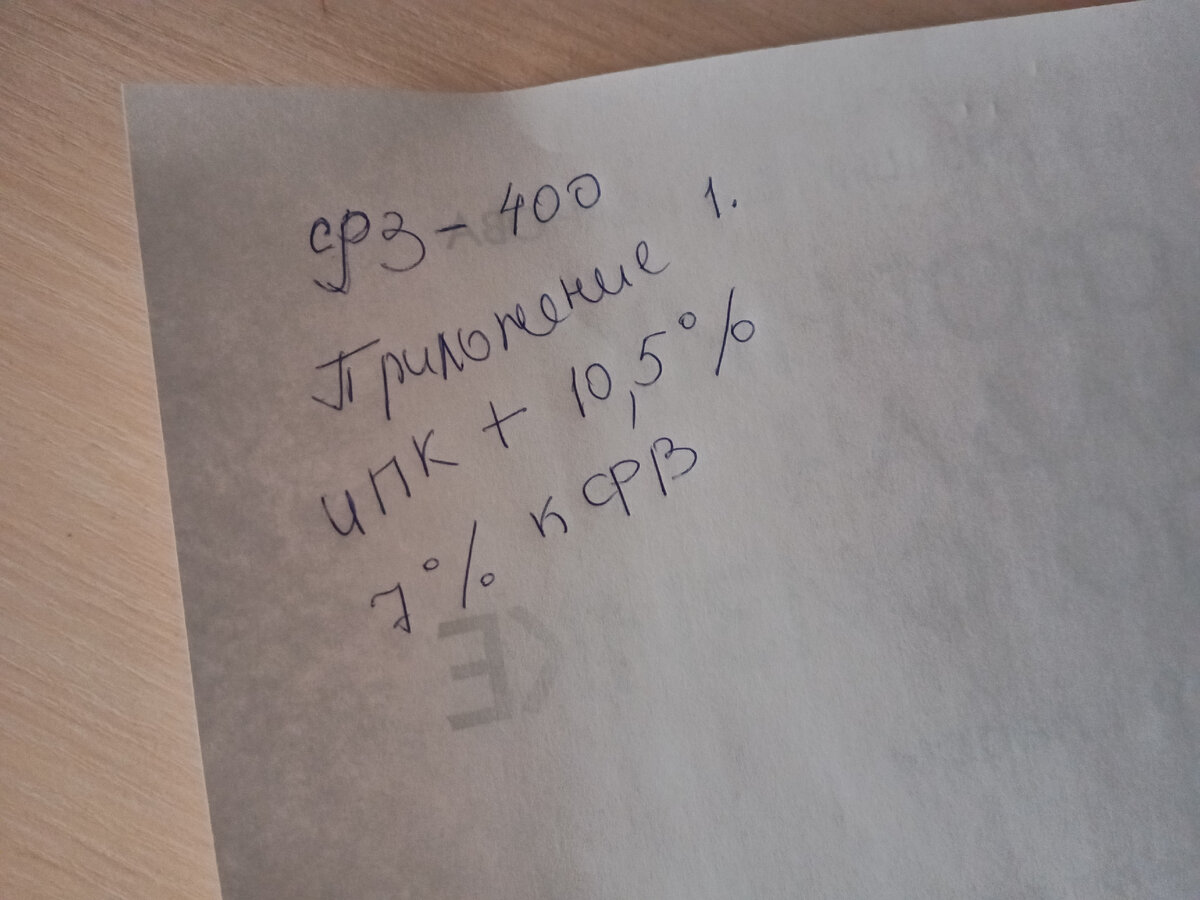 ФЗ - 400
Приложение 1.
ИПК + 10,5%
7% к ФВ